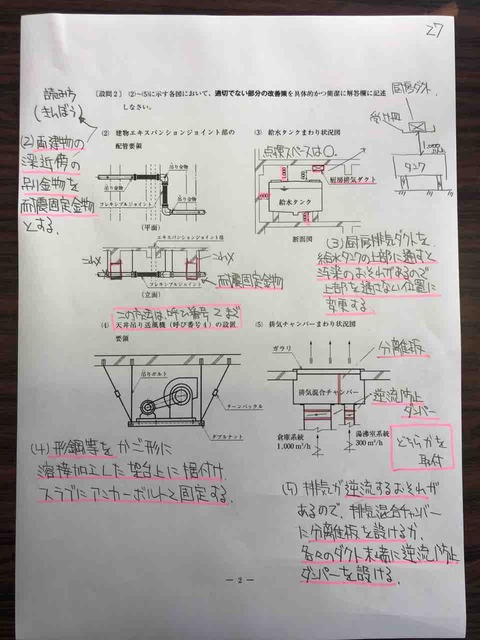 27
読み方
(きんぼう)
〔設問2〕 (2)~(5)に示す各図において、適切でない部分の改善策を具体的かつ簡潔に解答欄に記述
しなさい。
厨房ダクト
受け皿
1,000以上
タンク
(2) 建物エキスパンションジョイント部の
配管要領
吊り金物
吊り金物
フレキシブルジョイント
(平面)
エキスパンションジョイント部
これx
これx
フレキシブルジョイント
(立面)
耐震固定金物
(2) 両建物の
梁近傍の
吊り金物を
耐震固定金物
とする。
(3) 給水タンクまわり状況図
点検スペースは○
厨房排気ダクト
給水タンク
断面図
(3) 厨房排気ダクトを
給水タンクの上部に通すと
汚染のおそれがあるので
上部を通らない位置に
変更する
この方法は、呼び番号2まで
(4) 天井吊り送風機(呼び番号4)の設置
要領
吊りボルト
ターンバックル
ダブルナット
(4) 形鋼等をかご形に
溶接加工した架台上に据付け
スラブにアンカーボルトで固定する。
(5) 排気チャンバーまわり状況図
ガラリ
分離板
排気混合チャンバー
逆流防止
ダンパー
倉庫系統
1,000 m³/h
湯沸室系統
300 m³/h
どちらかを
取付
(5) 排気が逆流するおそれが
あるので、排気混合チャンバー
に分離板を設けるか、
各々のダクト末端に逆流防止
ダンパーを設ける。
— 2 —